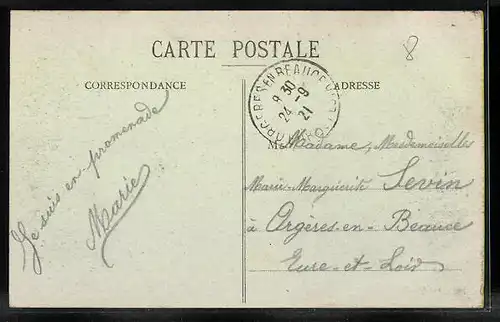 CARTE POSTALE
8
CORRESPONDANCE
ADRESSE
8 30
24 - 9
21
Je suis en promenade
Marie
M Madame, Mesdemoiselles
Marie-Marguerite Sevin
à Orgères-en-Beauce
Eure-et-Loir